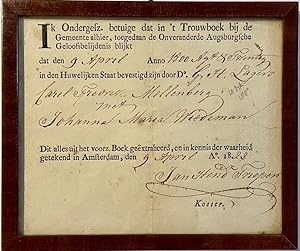 Ik Ondergesz. betuige dat in 't Trouwboek bij de
Gemeente alhier, toegedaan de Onveranderde Augsburgsche
Geloofsbelijdenis blijkt
dat den 9 April Anno 1800 Agt & Twintig
in den Huwelijken Staat bevestigd zijn door Ds. G. H. Lagers
Carel Mellenberg
met
Johanna Maria Wiedeman
Dit alles uit het voorz. Boek geëxtraheerd, en in kennis der waarheid
getekend in Amsterdam, den 9 April Ao. 18
Jan Hend
Koster.